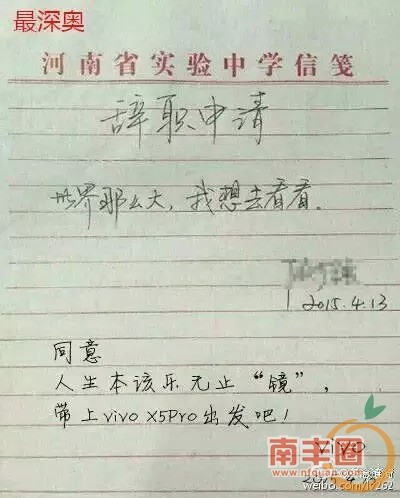 最深奥
河南省实验中学信笺
辞职申请
世界那么大，我想去看看。
2015.4.13
同意
人生本该乐无止“镜”，
带上vivo X5Pro出发吧！
vivo
南丰圈